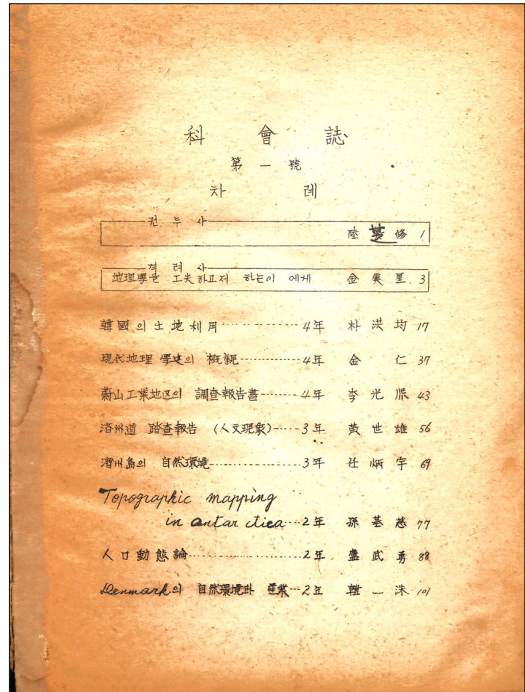 科 會 誌
第 一 號
차 례
권 두 사
修 1
격 려 사
地理學을 工夫하고저 하는이 에게 金 3
韓國의 土地利用 4年 朴 洪 均 17
現代地理 學史의 槪觀 4年 金 仁 37
蔚山工業地区의 調査報告書 4年 李 光 43
済州道 踏査報告 (人文現象) 3年 黃 世 雄 56
済州島의 自然環境 3年 任 炳 宇 69
Topographic mapping
in antarctica 2年 孫 基 慈 77
人口動態論 2年 盧 武 勇 88
Denmark의 自然環境과 産業 2年 一 洙 101